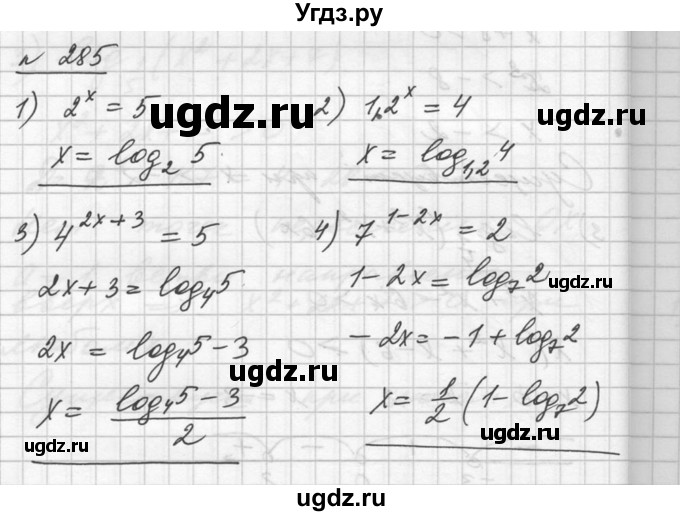 Угдз.ру
№ 285
1) 2^x = 5
x = log_2 5
2) 1,2^x = 4
x = log_{1,2} 4
3) 4^{2x+3} = 5
2x + 3 = log_4 5
2x = log_4 5 − 3
x = (log_4 5 − 3)/2
4) 7^{1−2x} = 2
1 − 2x = log_7 2
− 2x = −1 + log_7 2
x = 1/2 (1 − log_7 2)
ugdz.ru
ugdz.ru
ugdz.ru
ugdz.ru
ugdz.ru
ugdz.ru
ugdz.ru